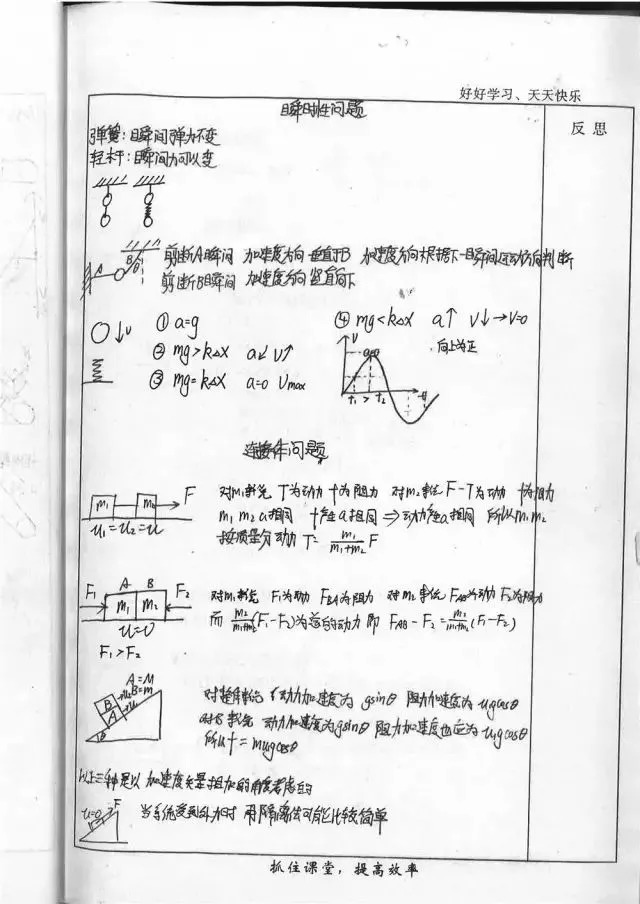 好好学习、天天快乐
反思
瞬时性问题
弹簧：瞬间弹力不变
轻杆：瞬间力可以变
A B θ
剪断A瞬间 加速度方向垂直于B 加速度方向根据下一瞬间运动方向判断
剪断B瞬间 加速度方向竖直向下
v
① a=g
② mg>kΔx a↙ v↑
③ mg=kΔx a=0 Vmax
④ mg<kΔx a↑ v↓→v=0
向上为正
v
a=0
t₁ t₂ t
连接体问题
m₁ m₂ F
u₁=u₂=u
对m₁来说 T为动力 f为阻力 对m₂来说 F-T为动力 f为阻力
m₁ m₂ a相同 f产生a相同 ⇒动力产生a相同 所以m₁ m₂
按质量分动力 T= m₁/(m₁+m₂) F
F₁ A B F₂
m₁ m₂
u=0
F₁>F₂
对m₁来说 F₁为动力 FBA为阻力 对m₂来说 FAB为动力 F₂为阻力
而 m₂/(m₁+m₂) (F₁-F₂)为总的动力 即 FAB-F₂= m₂/(m₁+m₂) (F₁-F₂)
A=M
B=m
B
A
θ
对整体来说 动力加速度为 gsinθ 阻力加速度为 u₁gcosθ
对B来说 动力加速度为gsinθ 阻力加速度也应为u₁gcosθ
所以f=mu₁gcosθ
以上三种是以加速度矢量叠加的角度考虑的
u=0 F
当系统受到外力时 用隔离法可能比较简单
抓住课堂，提高效率